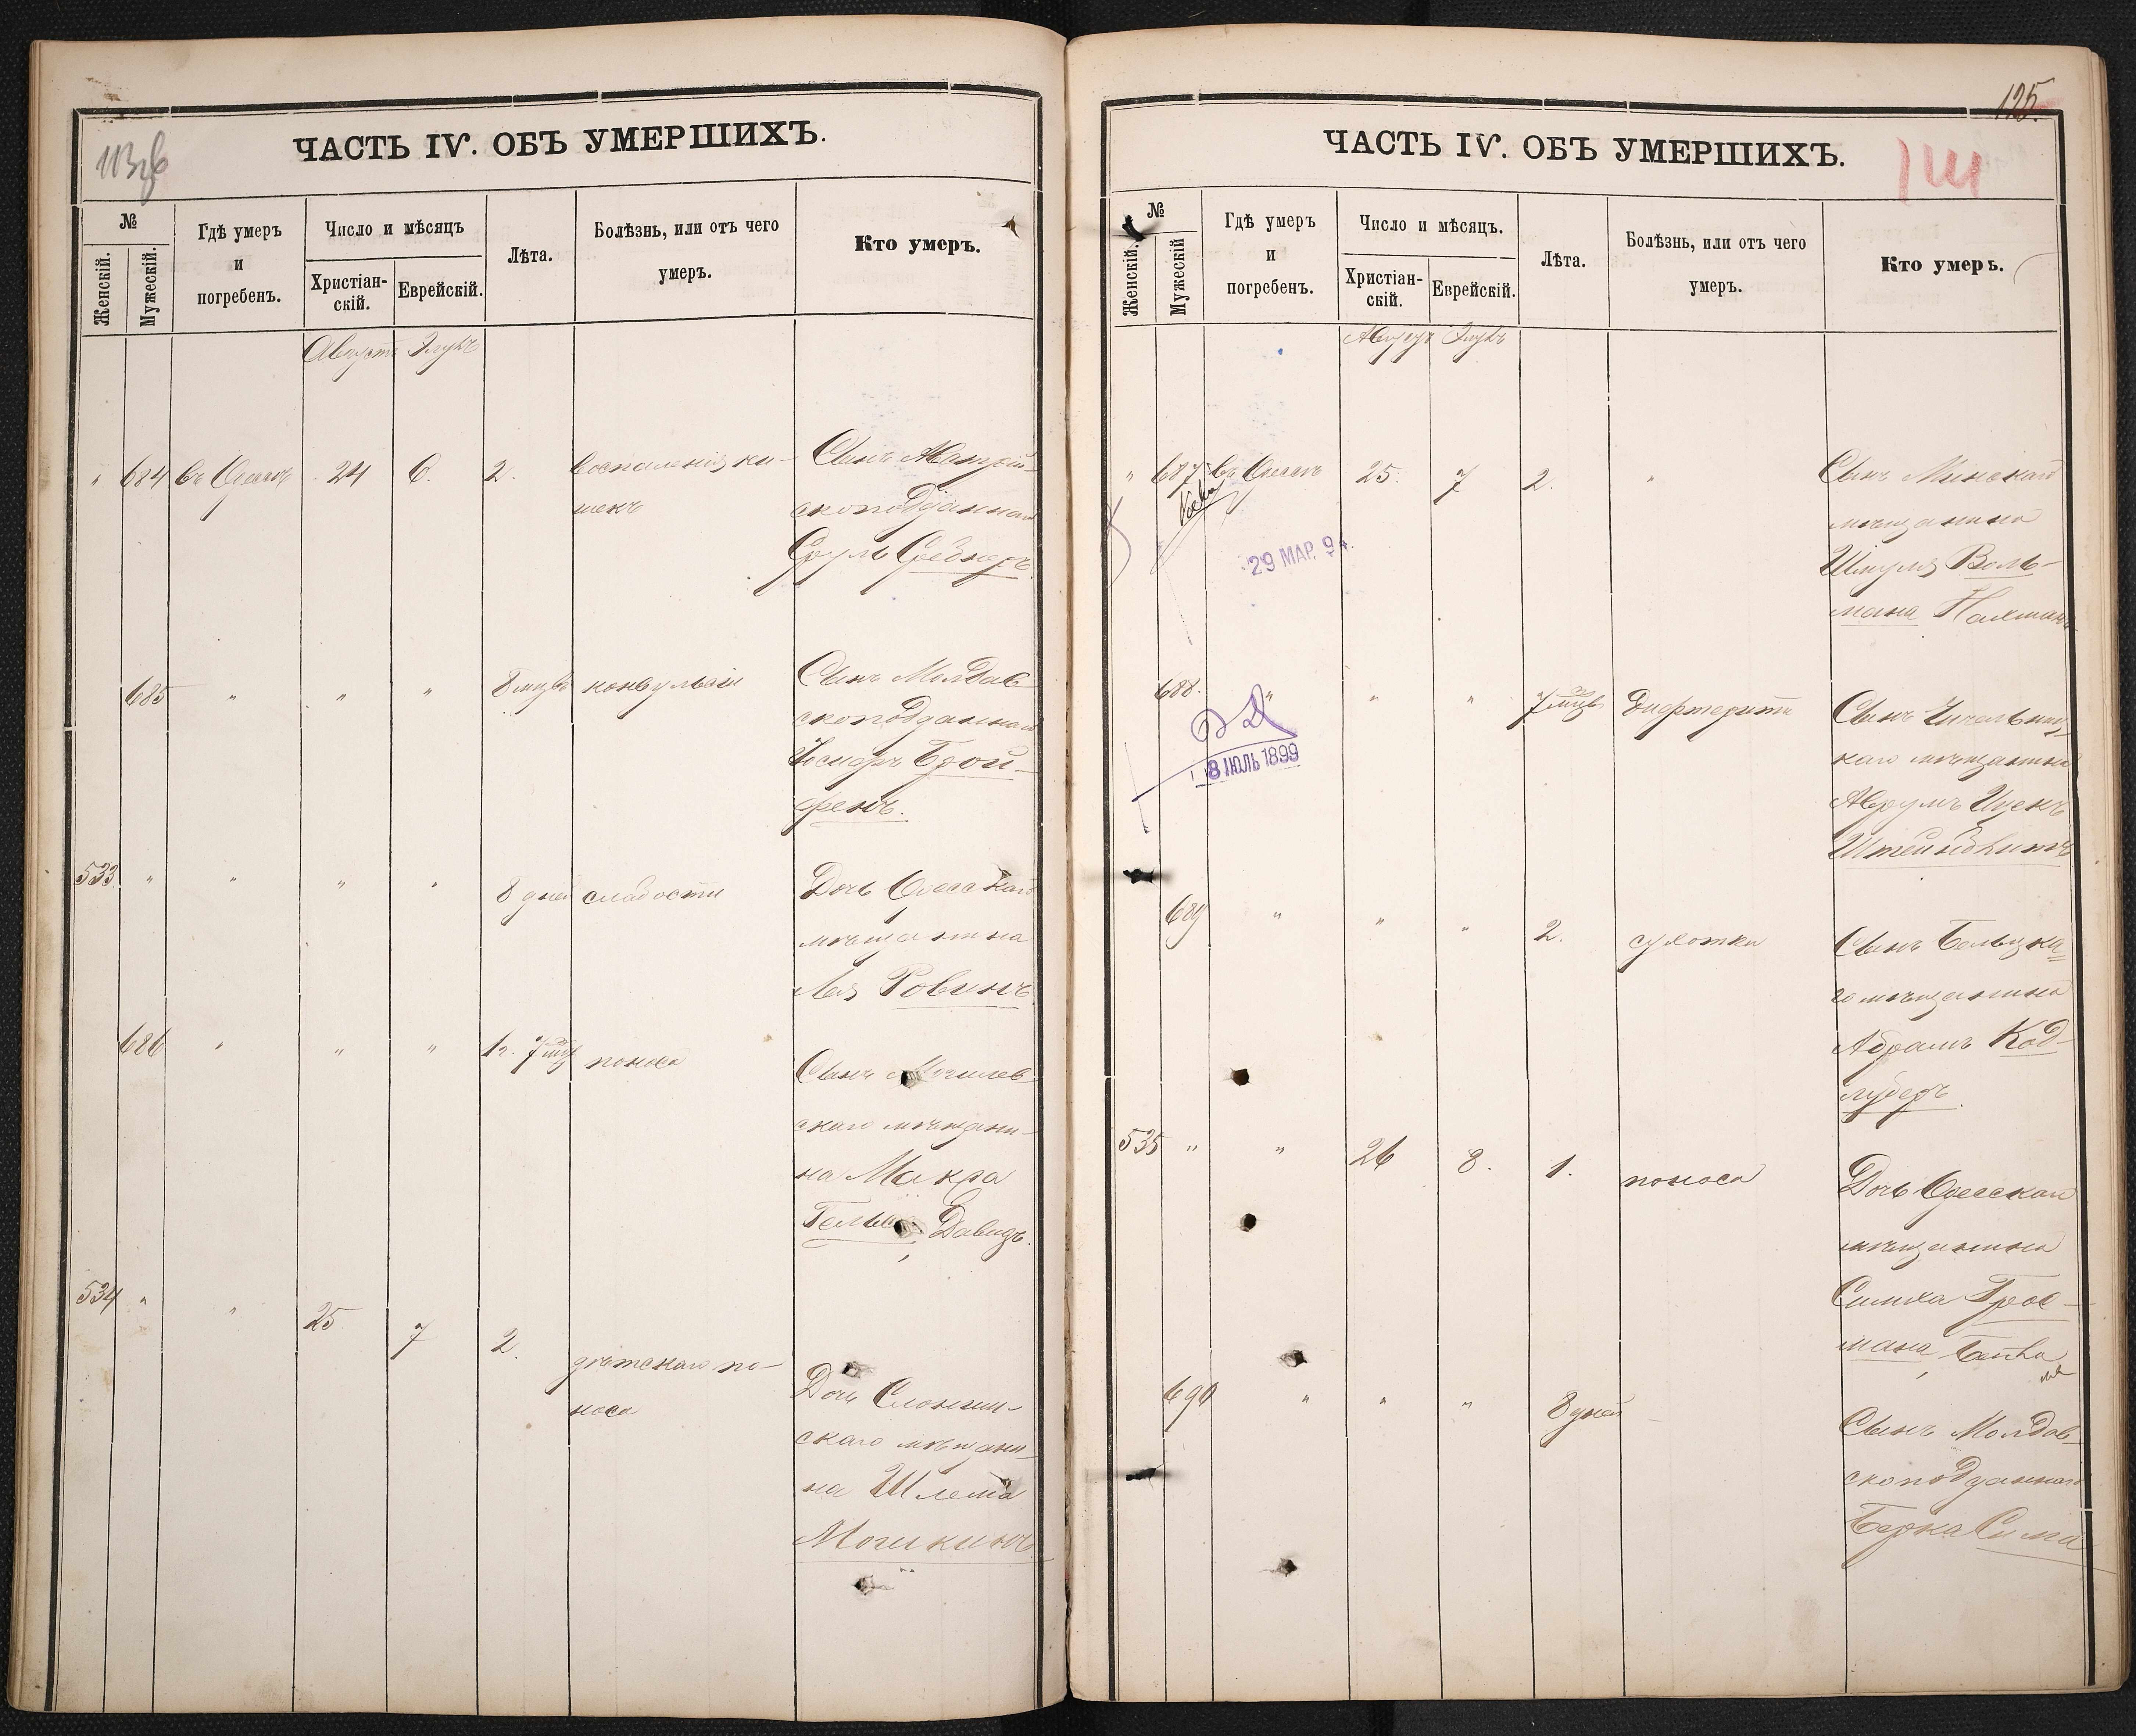 ЧАСТЬ IV. ОБЪ УМЕРШИХЪ.
№
Женскій.
Мужескій.
Гдѣ умеръ
и
погребенъ.
Число и мѣсяцъ
Христіан-
скій.
Еврейскій.
Лѣта.
Болѣзнь, или отъ чего
умеръ.
Кто умеръ.
Августъ Элулъ
" 684 въ Одессѣ 24 6. 2. воспаленія ки-
шекъ
Сынъ Австрій-
скоподданнаго
Сруль
685 " " " 8 мцвъ конвульсіи
Сынъ Молдав-
скоподданнаго
Іосифъ Брой-
френъ.
533 " " " " 8 дней слабости
Дочь Одесскаго
мѣщанина
Лея Ровинъ
686 " " " 1г. 7 мцв поноса
Сынъ Могилев-
скаго мѣщани-
на Макра
Давидъ.
534 " " 25 7 2. дѣтскаго по-
носа
Дочь Слоним-
скаго мѣщани-
на Шлема
Мошкинъ
125.
ЧАСТЬ IV. ОБЪ УМЕРШИХЪ.
№
Женскій.
Мужескій
Гдѣ умеръ
и
погребенъ.
Число и мѣсяцъ.
Христіан-
скій.
Еврейскій.
Лѣта.
Болѣзнь, или отъ чего
умеръ.
Кто умеръ.
Августъ Элулъ
" 687 въ Одессѣ 25. 7 2. "
29 МАР. 94.
Сынъ Минскаго
мѣщанина
Шмуля Воль-
мана Нахманъ
688. " " " 7 мцвъ Дифтеритъ
8 ІЮЛЬ 1899
Сынъ
каго мѣщанина
Аврумъ Ицекъ
689 " " " 2. сухотки
Сынъ Бельцка-
го мѣщанина
Абрамъ Код-
луберъ.
535 " " 26 8. 1. поноса
Дочь Одесскаго
мѣщанина
Симха Грос-
мана,
690 " " " 8 дней
Сынъ Молдав-
скоподданнаго
Берка Сима